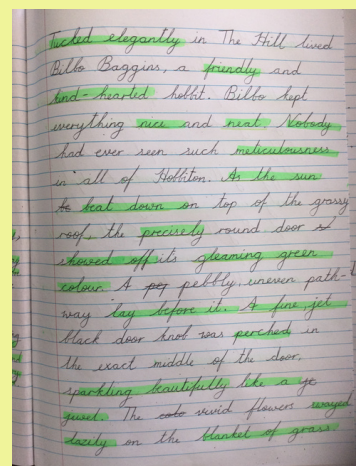 Tucked elegantly in The Hill lived
Bilbo Baggins, a friendly and
kind-hearted hobbit. Bilbo kept
everything nice and neat. Nobody
had ever seen such meticulousness
in all of Hobbiton. As the sun
beat down on top of the grassy
roof, the precisely round door
showed off its gleaming green
colour. A pebbly, uneven path-
way lay before it. A fine, jet
black door knob was perched in
the exact middle of the door,
sparkling beautifully like a
jewel. The vivid flowers swayed
lazily on the blanket of grass.